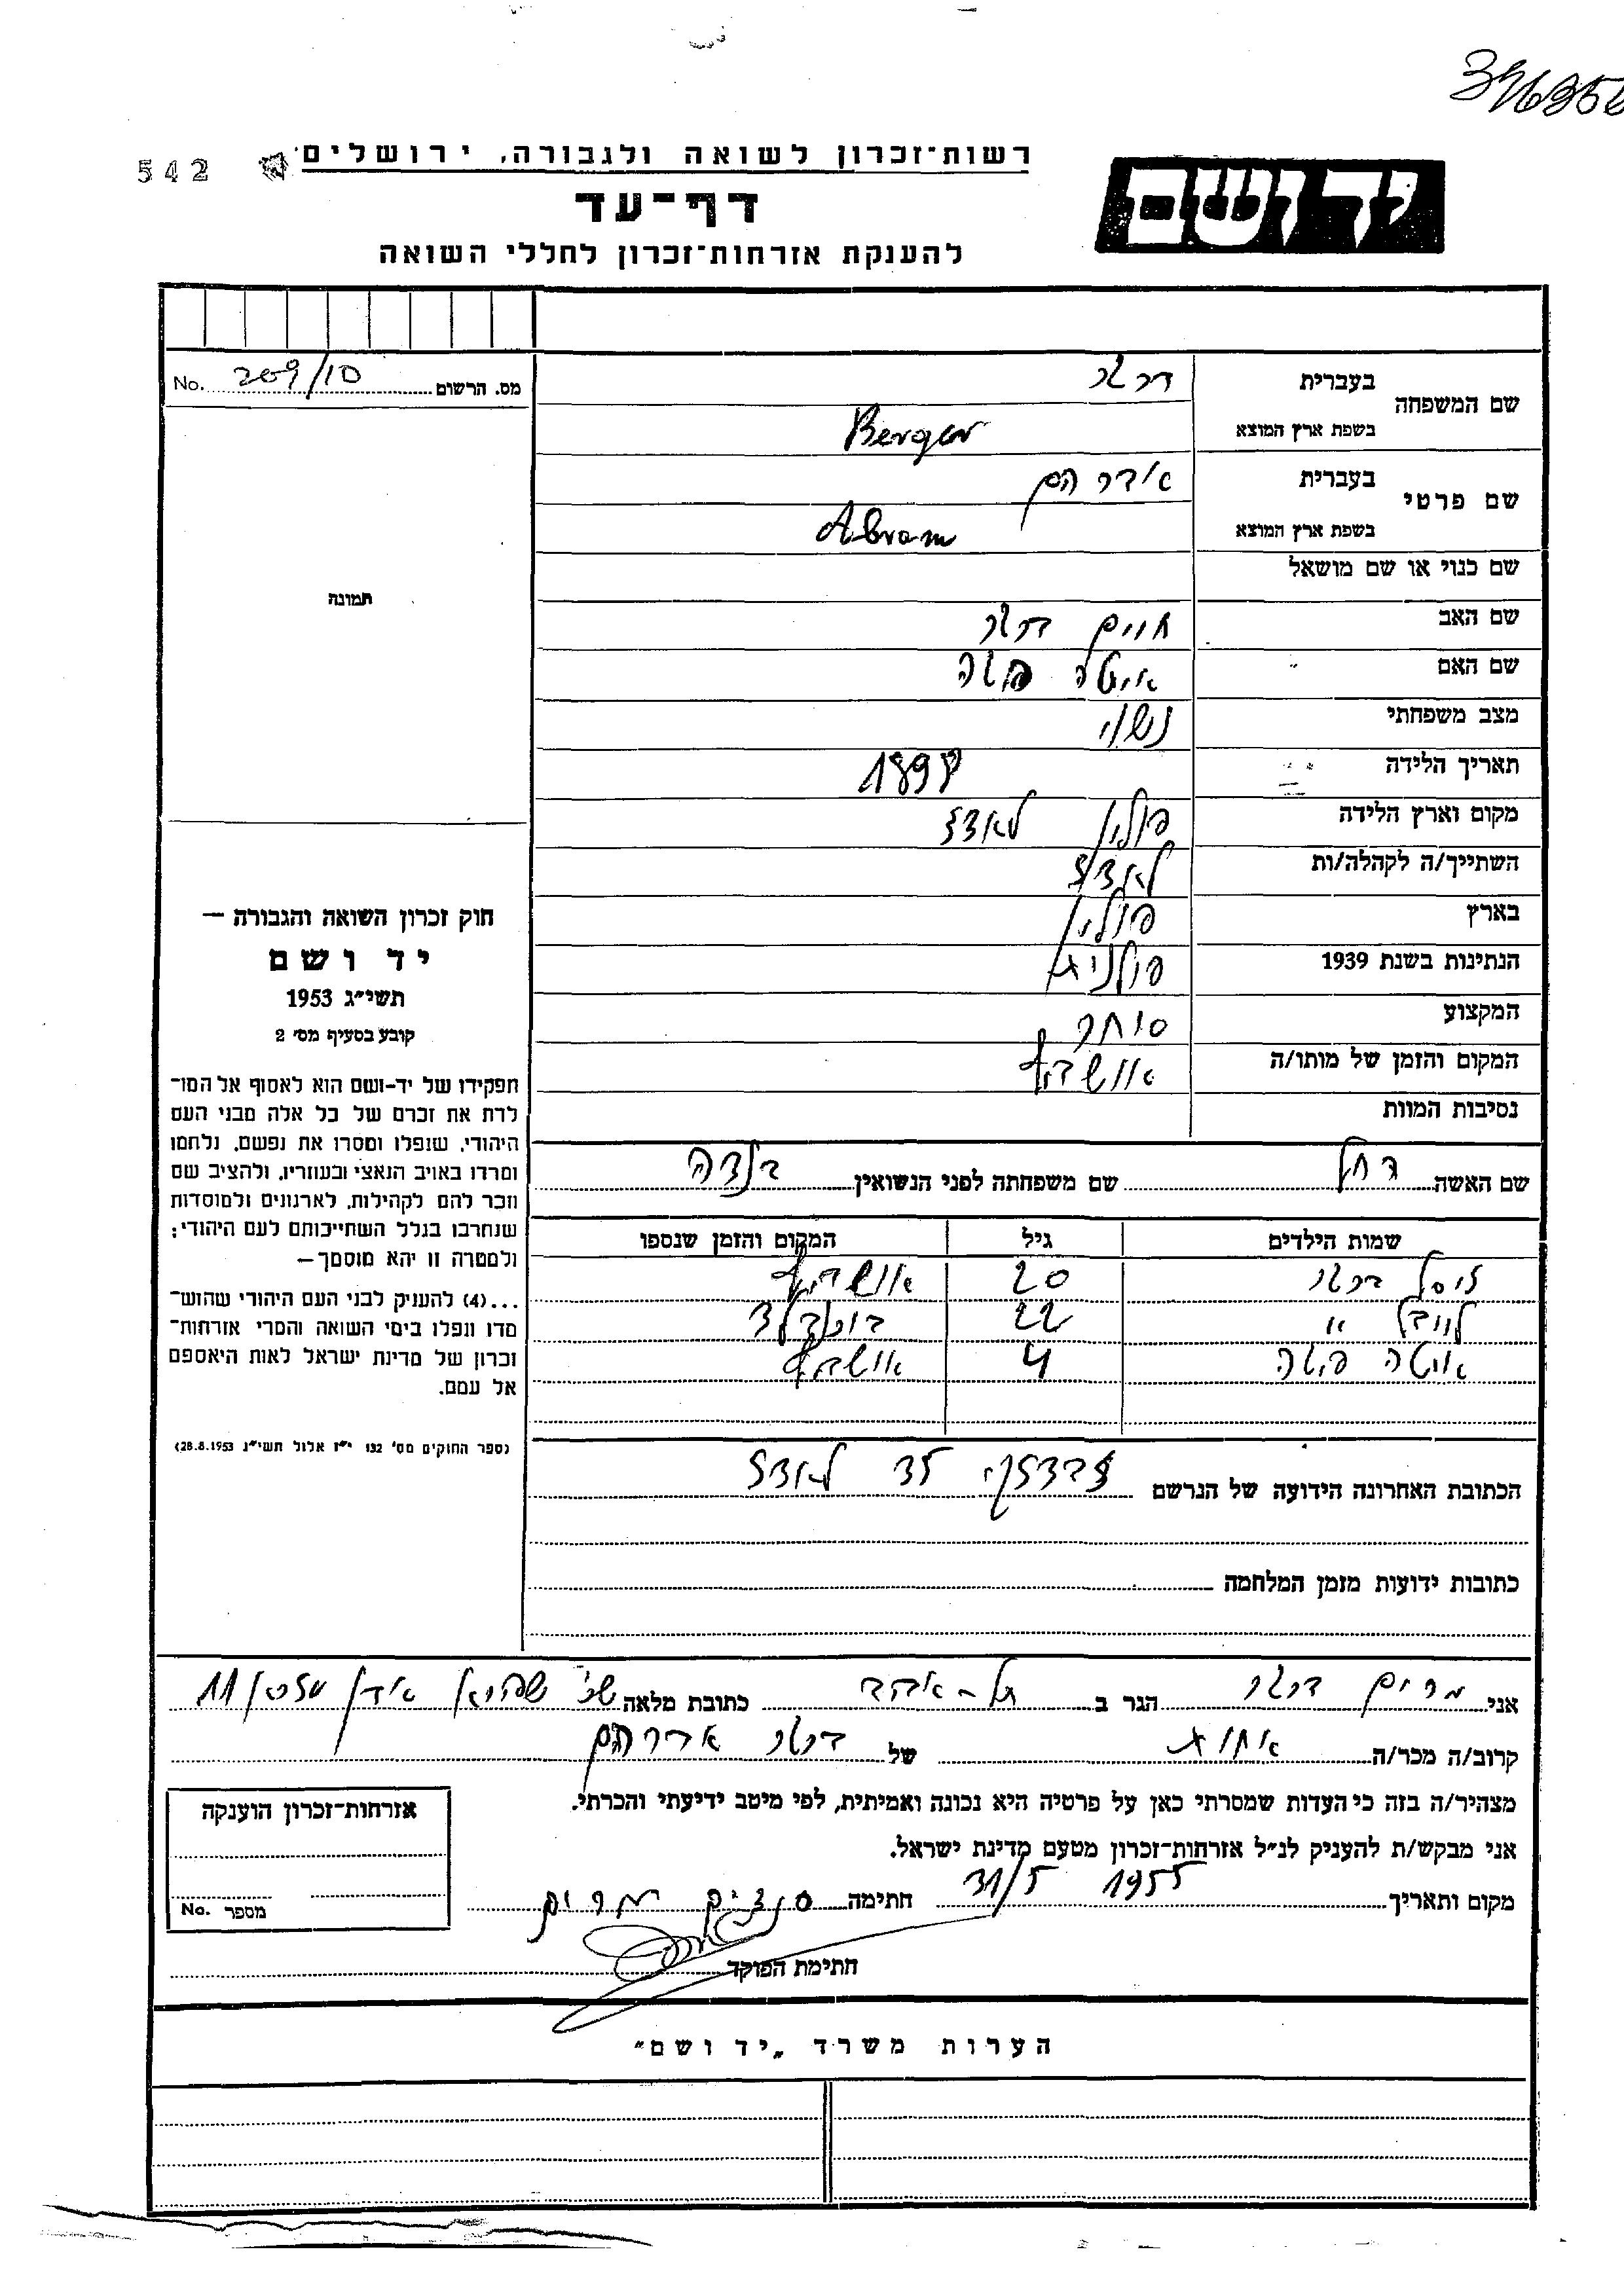 רשות־זכרון לשואה ולגבורה, ירושלים
542
יד ושם
דף־עד
להענקת אזרחות־זכרון לחללי השואה
מס. הרשום 209/10 No.
תמונה
שם המשפחה בעברית ברגר
בשפת ארץ המוצא Berger
שם פרטי בעברית אברהם
בשפת ארץ המוצא Abram
שם כנוי או שם מושאל
שם האב חיים ברגר
שם האם
מצב משפחתי נשוי
תאריך הלידה 1898
מקום וארץ הלידה פולין לאדז
השתייך/ה לקהלה/ות לאדז
בארץ פולין
הנתינות בשנת 1939 פולנית
המקצוע סוחר
המקום והזמן של מותו/ה אושביץ
נסיבות המוות
שם האשה רחל שם משפחתה לפני הנשואין
שמות הילדים גיל המקום והזמן שנספו
ברגר 20 אושביץ
" 22
4 אושביץ
הכתובת האחרונה הידועה של הנרשם לאדז
כתובות ידועות מזמן המלחמה
חוק זכרון השואה והגבורה —
יד ושם
תשי״ג 1953
קובע בסעיף מס׳ 2
תפקידו של יד־ושם הוא לאסוף אל המו־
לדת את זכרם של כל אלה מבני העם
היהודי, שנפלו ומסרו את נפשם, נלחמו
ומרדו באויב הנאצי ובעוזריו, ולהציב שם
וזכר להם לקהילות, לארגונים ולמוסדות
שנחרבו בגלל השתייכותם לעם היהודי;
ולמטרה זו יהא מוסמך—
...(4) להעניק לבני העם היהודי שהוש־
מדו ונפלו בימי השואה והמרי אזרחות־
זכרון של מדינת ישראל לאות היאספם
אל עמם.
(ספר החוקים מס׳ 132 י״ז אלול תשי״ג 28.8.1953)
אני מרים ברגר הגר ב תל-אביב כתובת מלאה 11
קרוב/ה מכר/ה אחות של ברגר אברהם
מצהיר/ה בזה כי העדות שמסרתי כאן על פרטיה היא נכונה ואמיתית, לפי מיטב ידיעתי והכרתי.
אני מבקש/ת להעניק לנ״ל אזרחות־זכרון מטעם מדינת ישראל.
מקום ותאריך 1955 31/5 חתימה מרים
חתימת הפוקד
אזרחות־זכרון הוענקה
מספר No.
הערות משרד „יד ושם״